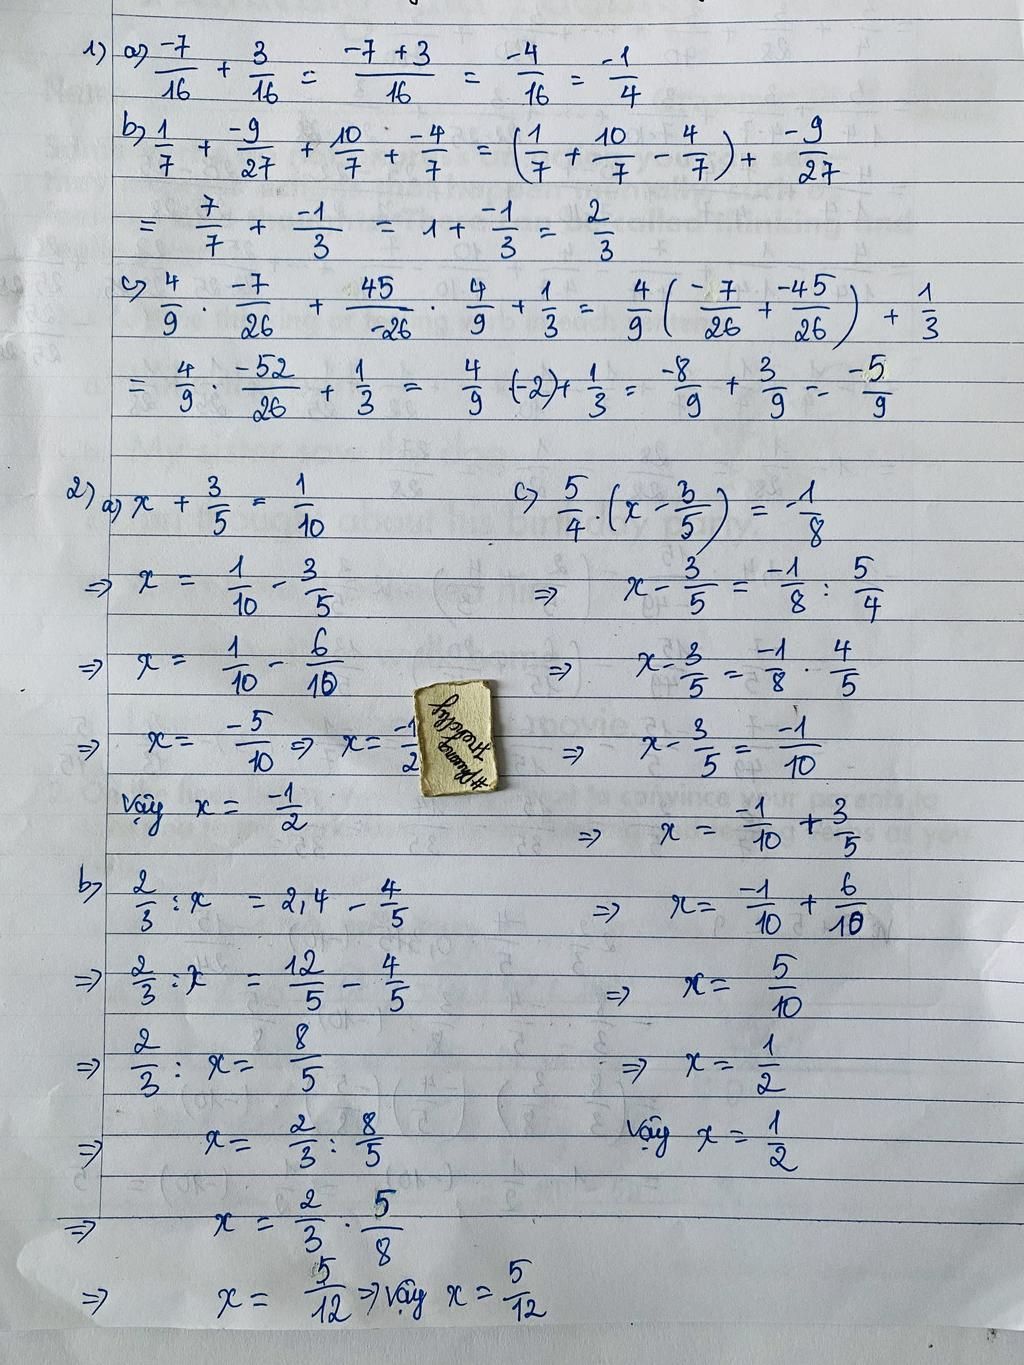 1) a) -7/16 + 3/16 = (-7 + 3)/16 = -4/16 = -1/4
b) 1/7 + -9/27 + 10/7 + -4/7 = (1/7 + 10/7 - 4/7) + -9/27
= 7/7 + -1/3 = 1 + -1/3 = 2/3
c) 4/9 . -7/26 + 45/-26 . 4/9 + 1/3 = 4/9 (-7/26 + -45/26) + 1/3
= 4/9 . -52/26 + 1/3 = 4/9 (-2) + 1/3 = -8/9 + 3/9 = -5/9
2) a) x + 3/5 = 1/10
⇒ x = 1/10 - 3/5
⇒ x = 1/10 - 6/10
⇒ x = -5/10 ⇒ x = -1/2
Vậy x = -1/2
#Phuong
b) 2/3 : x = 2,4 - 4/5
⇒ 2/3 : x = 12/5 - 4/5
⇒ 2/3 : x = 8/5
⇒ x = 2/3 : 8/5
⇒ x = 2/3 . 5/8
⇒ x = 5/12 ⇒ Vậy x = 5/12
c) 5/4 . (x - 3/5) = -1/8
⇒ x - 3/5 = -1/8 : 5/4
⇒ x - 3/5 = -1/8 . 4/5
⇒ x - 3/5 = -1/10
⇒ x = -1/10 + 3/5
⇒ x = -1/10 + 6/10
⇒ x = 5/10
⇒ x = 1/2
Vậy x = 1/2